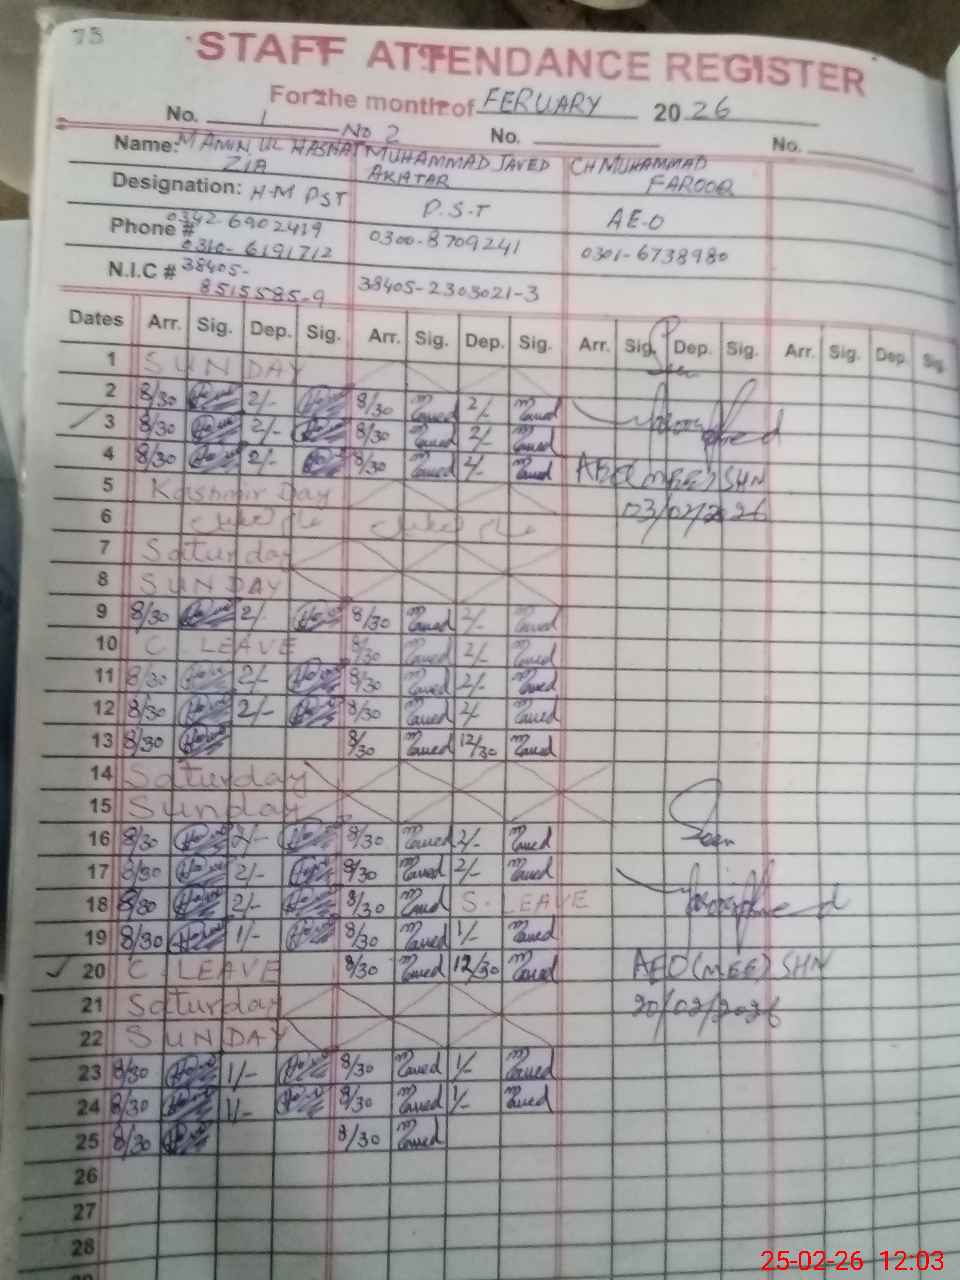 73
STAFF ATTENDANCE REGISTER
For the month of FERUARY 2026
No. 1 No 2 No. No.
Name: M AMIN UL HASNAT ZIA MUHAMMAD JAVED AKHTAR CH MUHAMMAD FAROOQ
Designation: H-M PST P.S.T AE-O
Phone # 0342-6902419 0300-8709241 0301-6738980
0310-6191712
N.I.C # 38405-8515585-9 38405-2303021-3
Dates Arr. Sig. Dep. Sig. Arr. Sig. Dep. Sig. Arr. Sig. Dep. Sig. Arr. Sig. Dep. Sig.
Seen
1 SUNDAY
2 8/30 2/- 8/30 2/-
3 8/30 2/- 8/30 2/-
4 8/30 2/- 8/30 2/- AEO (MEE) SHN
5 Kashmir Day
03/02/2026
6
7 Saturday
8 SUNDAY
9 8/30 2/- 8/30 2/-
10 C. LEAVE 8/30 2/-
11 8/30 2/- 8/30 2/-
12 8/30 2/- 8/30 2/-
13 8/30 8/30 12/30
14 Saturday
15 Sunday
16 8/30 2/- 8/30 2/- Seen
17 8/30 2/- 8/30 2/-
18 8/30 2/- 8/30 S. LEAVE
19 8/30 1/- 8/30 1/-
20 C. LEAVE 8/30 12/30 AEO (MEE) SHN
21 Saturday 20/02/2026
22 SUNDAY
23 8/30 1/- 8/30 1/-
24 8/30 1/- 8/30 1/-
25 8/30 8/30
26
27
28
25-02-26 12:03